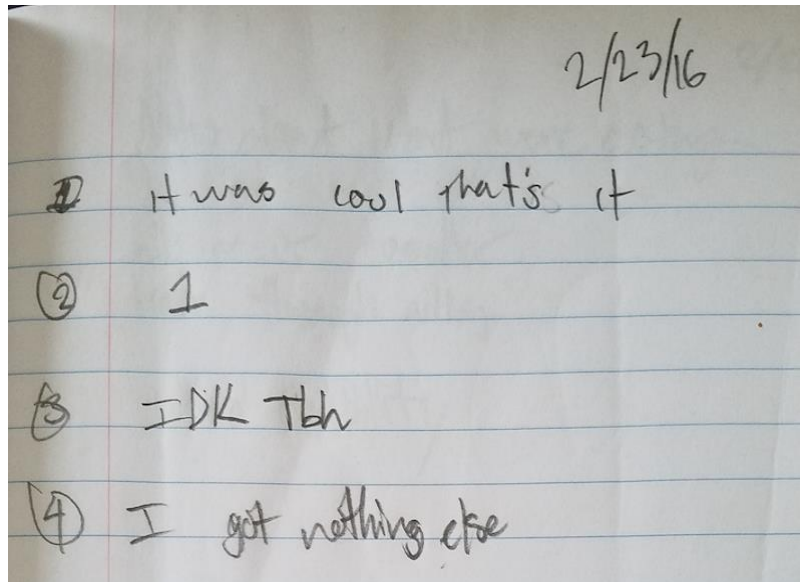 2/23/16
1 it was cool that's it
② 1
③ IDK Tbh
④ I got nothing else